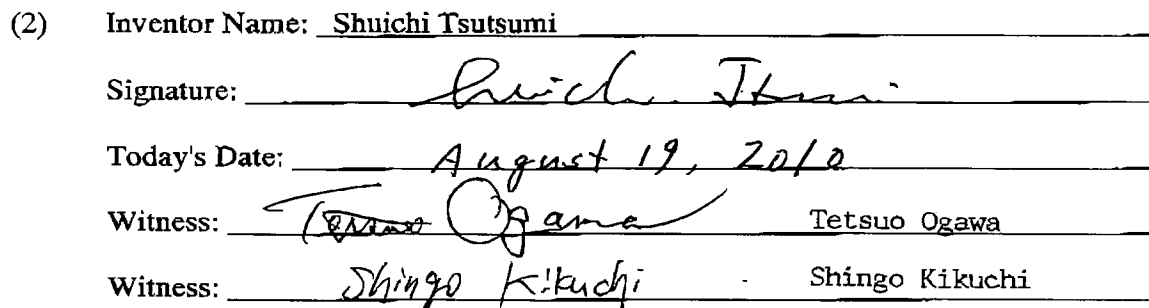 (2) Inventor Name: Shuichi Tsutsumi
Signature:
Today's Date: August 19, 2010
Witness: Ogawa Tetsuo Ogawa
Witness: Shingo Kikuchi Shingo Kikuchi